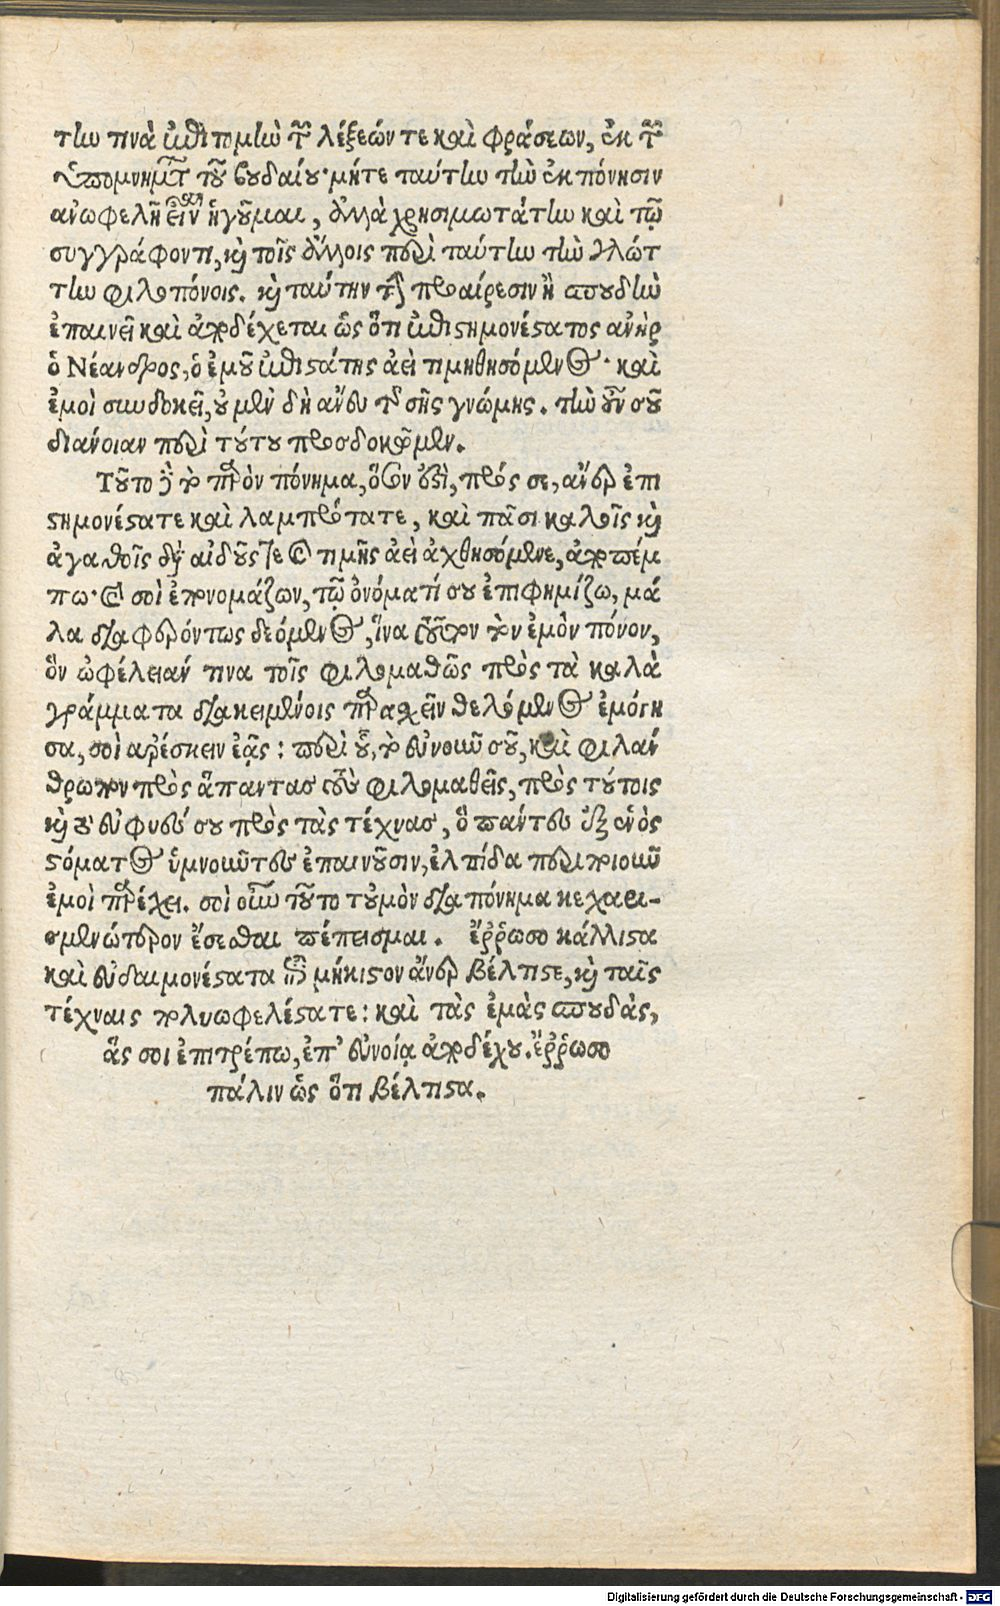 την τινὰ ἐπιτομὴν τῶν λέξεών τε καὶ φράσεων, ἐκ τῶν
ὑπομνημάτων τοῦ βουδαίου· μήτε ταύτην τὴν ἐκπόνησιν
ἀνωφελῆ εἶναι ἡγοῦμαι, ἀλλὰ χρησιμωτάτην καὶ τῷ
συγγράφοντι, καὶ τοῖς ἄλλοις περὶ ταύτην τὴν γλώτ
την φιλοπόνοις. καὶ ταύτην τὴν προαίρεσιν ἢ σπουδὴν
ἐπαινεῖ καὶ ἀποδέχεται ὡς ὅτι ἐπιστημονέστατος ἀνὴρ
ὁ Νέανδρος, ὁ ἐμοῦ ἐπιστάτης ἀεὶ τιμηθησόμενος· καὶ
ἐμοὶ συνδοκεῖ, οὐ μὲν δὴ ἄνευ τῆς σῆς γνώμης. τὴν οὖν σοῦ
διάνοιαν περὶ τούτου προσδοκῶμεν.
Τοῦτο τὸ παρὸν πόνημα, ὅσον ἐστὶ, πρός σε, ἄνερ ἐπι
στημονέστατε καὶ λαμπρότατε, καὶ πᾶσι καλοῖς καὶ
ἀγαθοῖς δι' αἰδοῦς τε καὶ τιμῆς ἀεὶ ἀχθησόμενε, ἀποπέμ
πω· καὶ σοὶ ἐπονομάζων, τῷ ὀνόματί σου ἐπιφημίζω, μά
λα διαφερόντως δεόμενος, ἵνα τοῦτον τὸν ἐμὸν πόνον,
ὃν ὠφέλειάν τινα τοῖς φιλομαθῶς πρὸς τὰ καλὰ
γράμματα διακειμένοις παρασχεῖν θελόμενος ἐμόγη
σα, σοὶ ἀρέσκειν ἐᾷς: περὶ οὗ, τὸ εὐνοικοῦ σοῦ, καὶ φιλάν
θρωπον πρὸς ἅπαντας τοὺς φιλομαθεῖς, πρὸς τούτοις
καὶ τὸ εὐφυὲς σου πρὸς τὰς τέχνας, ὃ πάντες ἐξ ἑνὸς
στόματος ὑμνοῦντες ἐπαινοῦσιν, ἐλπίδα
ἐμοὶ παρέχει. σοὶ οὖν τοῦτο τοὐμὸν διαπόνημα κεχαρι-
σμενώτερον ἔσεσθαι πέπεισμαι. ἔῤῥωσο κάλλιστα
καὶ εὐδαιμονέστατα ἐπὶ μήκιστον ἄνερ βέλτιστε, καὶ ταῖς
τέχναις πολυωφελέστατε: καὶ τὰς ἐμὰς σπουδὰς,
ἅς σοι ἐπιτρέπω, ἐπ' εὐνοίᾳ ἀποδέχου. ἔῤῥωσο
πάλιν ὡς ὅτι βέλτιστα.
Digitalisierung gefördert durch die Deutsche Forschungsgemeinschaft - DFG